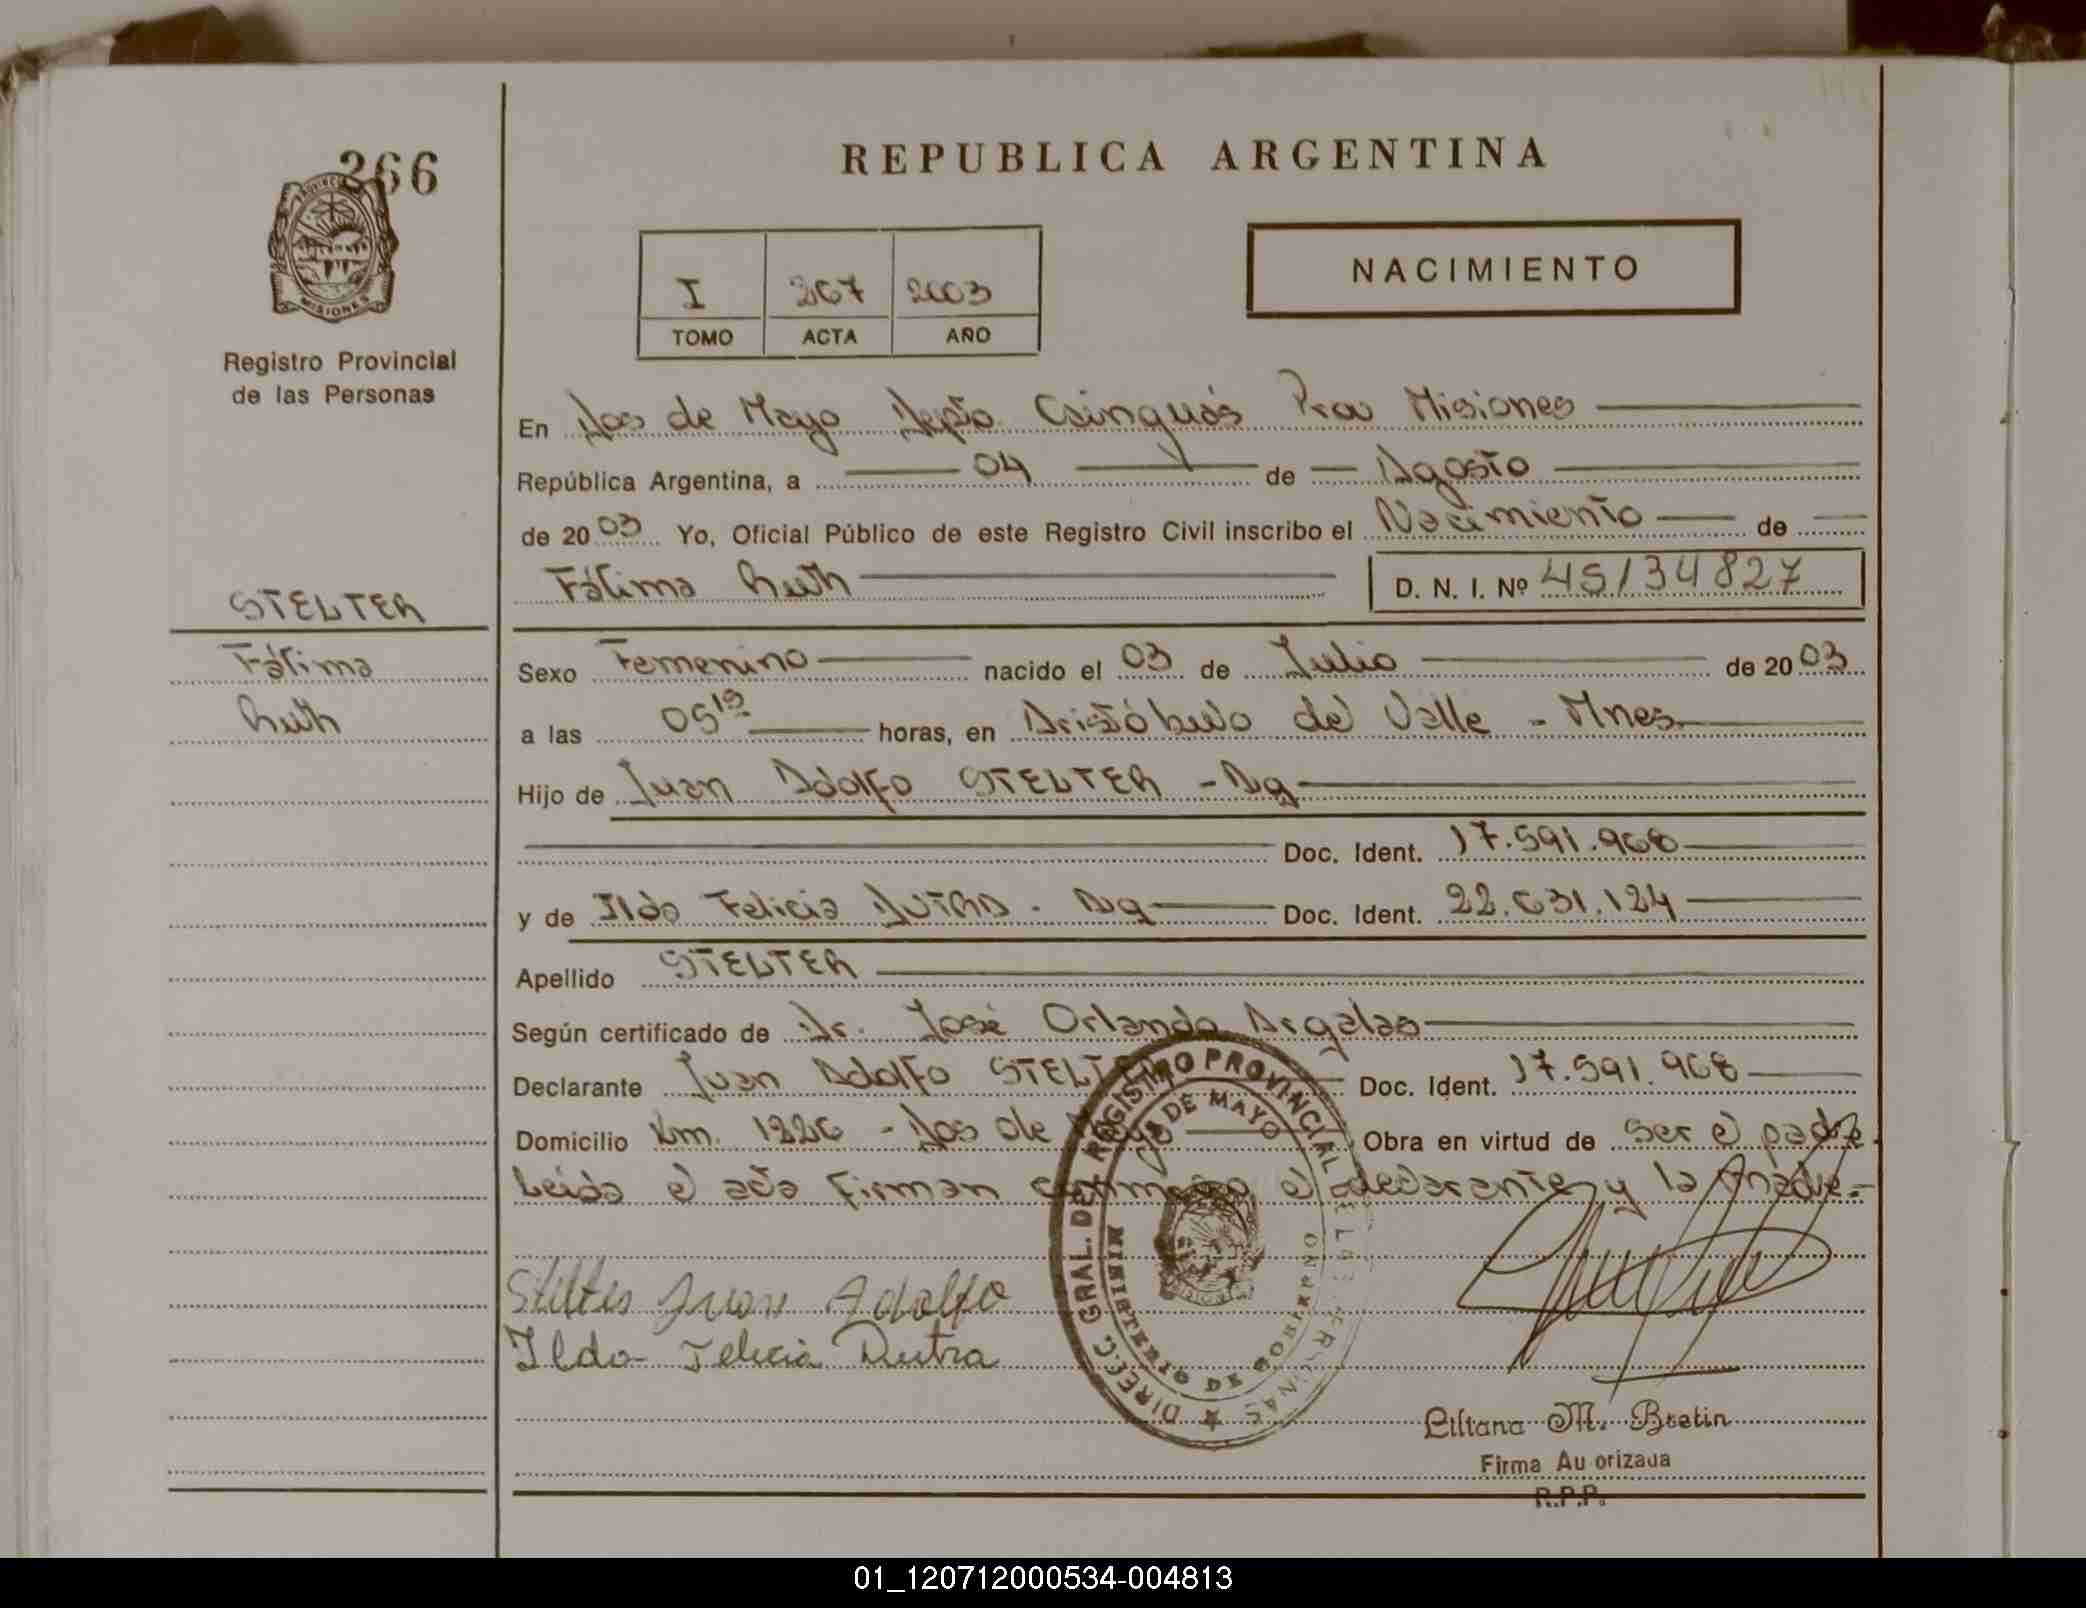 366
PROVINCIA
MISIONES
Registro Provincial
de las Personas
REPUBLICA ARGENTINA
I 267 2003
TOMO ACTA AÑO
NACIMIENTO
En Dos de Mayo Depto Cainguás Prov Misiones
República Argentina, a 04 de Agosto
de 2003 Yo, Oficial Público de este Registro Civil inscribo el Nacimiento de
Fátima Ruth D. N. I. Nº 45134827
STELTER
Fátima
Ruth
Sexo Femenino nacido el 03 de Julio de 2003
a las 05 15 horas, en Aristóbulo del Valle - Mnes
Hijo de Juan Adolfo STELTER - Ag
Doc. Ident. 17.591.968
y de Ilda Felicia DUTRA - Ag Doc. Ident. 22.631.124
Apellido STELTER
Según certificado de Dr. José Orlando Argalas
Declarante Juan Adolfo STELTER Doc. Ident. 17.591.968
Domicilio Km. 1226 - Dos de Mayo Obra en virtud de ser el padre
Leída el acta firman conmigo el declarante y la madre.-
DIRECC. GRAL. DEL REGISTRO PROVINCIAL DE LAS PERSONAS
2 DE MAYO
MINISTERIO DE GOBIERNO
Stelter Juan Adolfo
Ilda Felicia Dutra
Liliana M. Bretin
Firma Autorizada
R.P.P.
01_120712000534-004813